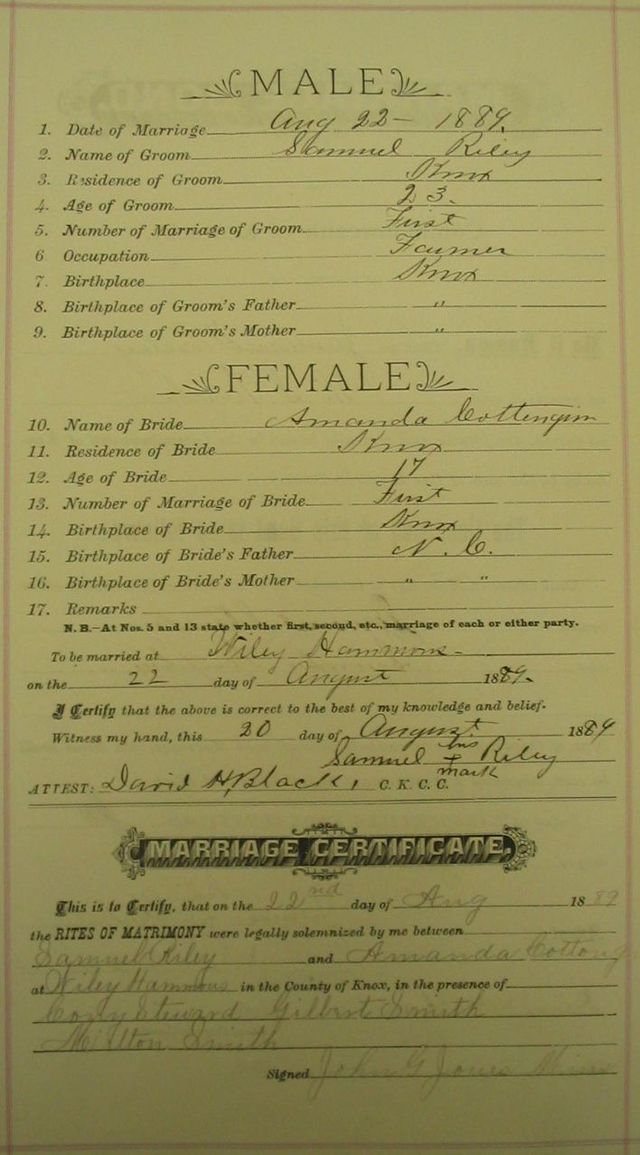 MALE
1. Date of Marriage Aug 22 - 1889.
2. Name of Groom Samuel Riley
3. Residence of Groom Knox
4. Age of Groom 23.
5. Number of Marriage of Groom First
6 Occupation Farmer
7. Birthplace Knox
8. Birthplace of Groom's Father "
9. Birthplace of Groom's Mother "
FEMALE
10. Name of Bride Amanda Cottengim
11. Residence of Bride Knox
12. Age of Bride 17
13. Number of Marriage of Bride First
14. Birthplace of Bride Knox
15. Birthplace of Bride's Father N. C.
16. Birthplace of Bride's Mother " "
17. Remarks
N. B.—At Nos. 5 and 13 state whether first, second, etc., marriage of each or either party.
To be married at Wiley Hammons
on the 22 day of August 1889.
I Certify that the above is correct to the best of my knowledge and belief.
Witness my hand, this 20 day of August 1889
Samuel his x mark Riley
ATTEST: David H. Black, C. K. C. C.
MARRIAGE CERTIFICATE.
This is to Certify, that on the 22nd day of Aug 1889
the RITES OF MATRIMONY were legally solemnized by me between
Samuel Riley and Amanda
at Wiley Hammons in the County of Knox, in the presence of
Steward Gilbert Smith
Milton Smith
Signed John G Jones